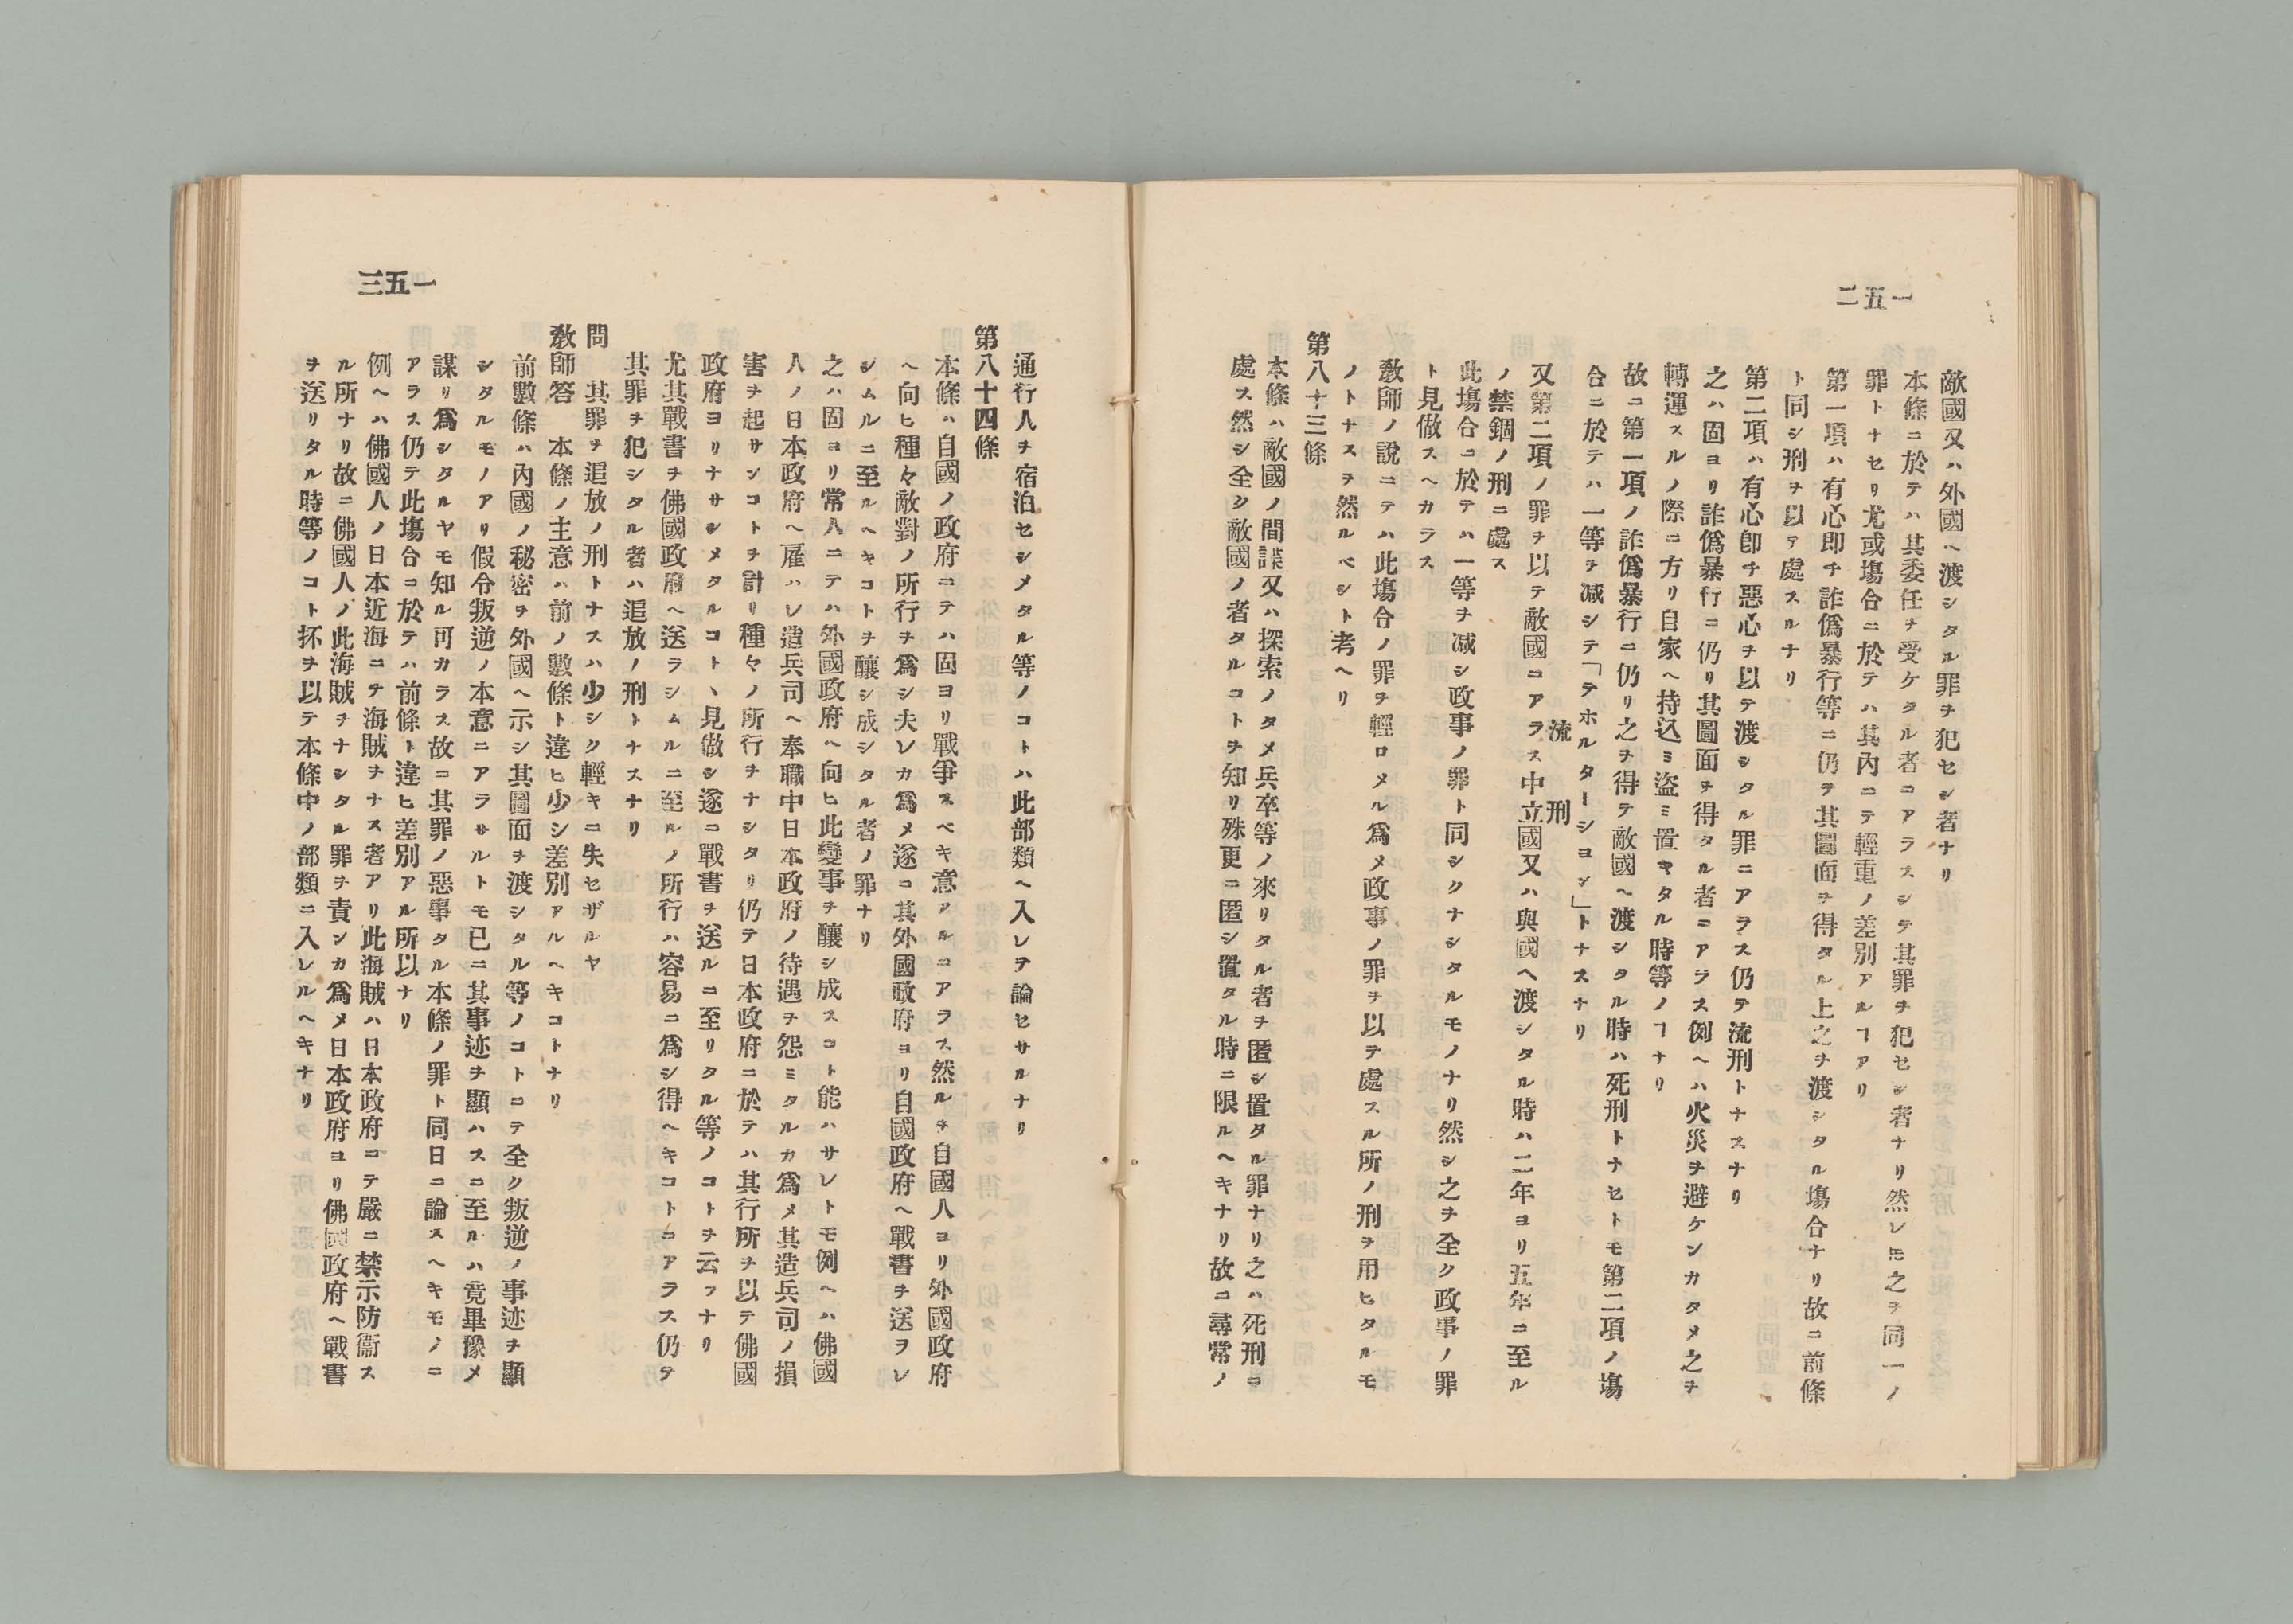 一五二
敵國又ハ外國ヘ渡シタル罪ヲ犯セシ者ナリ
本條ニ於テハ其委任ヲ受ケタル者ニアラスシテ其罪ヲ犯セシ者ナリ然レ𪜈之ヲ同一ノ
罪トナセリ尤或塲合ニ於テハ其內ニテ輕重ノ差別アルヿアリ
第一項ハ有心即チ詐僞暴行等ニ仍ヲ其圖面ヲ得タル上之ヲ渡シタル塲合ナリ故ニ前條
ト同シ刑ヲ以テ處スルナリ
第二項ハ有心卽チ惡心ヲ以テ渡シタル罪ニアラス仍テ流刑トナスナリ
之ハ固ヨリ詐僞暴行ニ仍リ其圖面ヲ得タル者ニアラス例ヘハ火災ヲ避ケンカタメ之ヲ
轉運スルノ際ニ方リ自家ヘ持込ミ盜ミ置キタル時等ノヿナリ
故ニ第一項ノ詐僞暴行ニ仍リ之ヲ得テ敵國ヘ渡シタル時ハ死刑トナセトモ第二項ノ塲
合ニ於テハ一等ヲ减シテ「テホルターシヨン」トナスナリ
流刑
又第二項ノ罪ヲ以テ敵國ニアラス中立國又ハ與國ヘ渡シタル時ハ二年ヨリ五年ニ至ル
ノ禁錮ノ刑ニ處ス
此塲合ニ於テハ一等ヲ减シ政事ノ罪ト同シクナシタルモノナリ然シ之ヲ全ク政事ノ罪
ト見做スヘカラス
敎師ノ說ニテハ此塲合ノ罪ヲ輕ロメル爲メ政事ノ罪ヲ以テ處スル所ノ刑ヲ用ヒタルモ
ノトナスヲ然ルベシト考ヘリ
第八十三條
本條ハ敵國ノ間諜又ハ探索ノタメ兵卒等ノ來リタル者ヲ匿シ置タル罪ナリ之ハ死刑ニ
處ス然シ全ク敵國ノ者タルコトヲ知リ殊更ニ匿シ置タル時ニ限ルヘキナリ故ニ尋常ノ
一五三
通行人ヲ宿泊セシメタル等ノコトハ此部類ヘ入レテ論セサルナリ
第八十四條
本條ハ自國ノ政府ニテハ固ヨリ戰爭スベキ意アルニアラス然ルヲ自國人ヨリ外國政府
ヘ向ヒ種々敵對ノ所行ヲ爲シ夫レカ爲メ遂ニ其外國政府ヨリ自國政府ヘ戰書ヲ送ヲレ
シムルニ至ルヘキコトヲ釀シ成シタル者ノ罪ナリ
之ハ固ヨリ常人ニテハ外國政府ヘ向ヒ此變事ヲ釀シ成スコト能ハサレトモ例ヘハ佛國
人ノ日本政府ヘ雇ハレ造兵司ヘ奉職中日本政府ノ待遇ヲ怨ミタルカ爲メ其造兵司ノ損
害ヲ起サンコトヲ計リ種々ノ所行ヲナシタリ仍テ日本政府ニ於テハ其行所ヲ以テ佛國
政府ヨリナサシメタルコトヽ見做シ遂ニ戰書ヲ送ルニ至リタル等ノコトヲ云フナリ
尤其戰書ヲ佛國政府ヘ送ラシムルニ至ルノ所行ハ容易ニ爲シ得ヘキコトニアラス仍テ
其罪ヲ犯シタル者ハ追放ノ刑トナスナリ
問　其罪ヲ追放ノ刑トナスハ少シク輕キニ失セザルヤ
敎師答　本條ノ主意ハ前ノ數條ト違ヒ少シ差別アルヘキコトナリ
前數條ハ內國ノ秘密ヲ外國ヘ示シ其圖面ヲ渡シタル等ノコトニテ全ク叛逆ノ事迹ヲ顯
シタルモノアリ假令叛逆ノ本意ニアラサルトモ已ニ其事迹ヲ顯ハスニ至ルハ竟畢豫メ
謀リ爲シタルヤモ知ル可カラス故ニ其罪ノ惡事タル本條ノ罪ト同日ニ論スヘキモノニ
アラス仍テ此塲合ニ於テハ前條ト違ヒ差別アル所以ナリ
例ヘハ佛國人ノ日本近海ニテ海賊ヲナス者アリ此海賊ハ日本政府ニテ嚴ニ禁示防衞ス
ル所ナリ故ニ佛國人ノ此海賊ヲナシタル罪ヲ責ンカ爲メ日本政府ヨリ佛國政府ヘ戰書
ヲ送リタル時等ノコト抔ヲ以テ本條中ノ部類ニ入レルヘキナリ